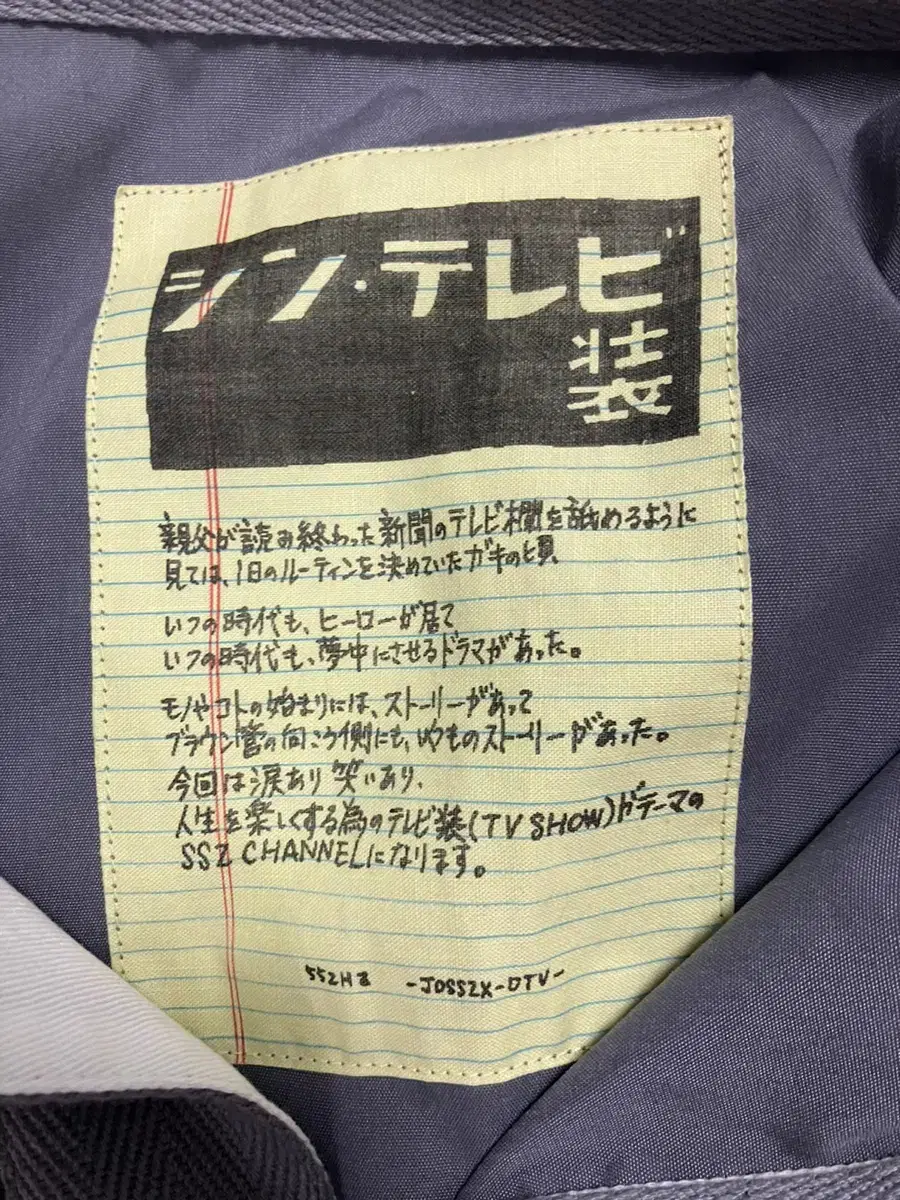 シン・テレビ
装
親父が読み終わった新聞のテレビ欄を舐めるように
見ては、1日のルーティンを決めていたガキの頃
いつの時代も、ヒーローが居て
いつの時代も、夢中にさせるドラマがあった。
モノやコトの始まりには、ストーリーがあって
ブラウン管の向こう側にも、いくつものストーリーがあった。
今回は涙あり笑いあり、
人生を楽しくする為のテレビ装(TV SHOW)がテーマの
SSZ CHANNELになります。
-JOSSZX-DTV-